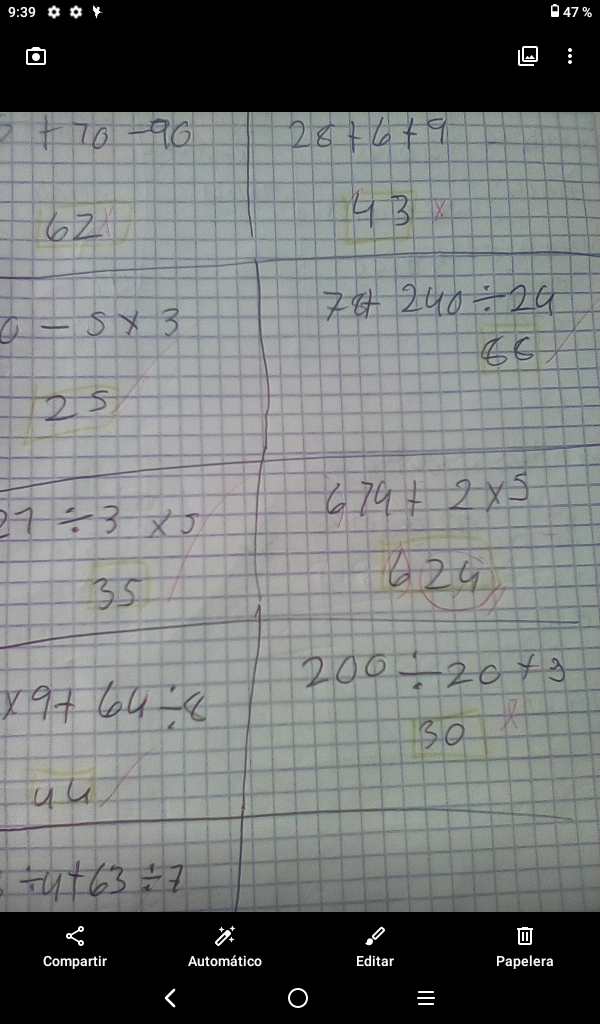 9:39 47 %
+ 70 - 90
28 + 6 + 9
62 x
43 x
0 - 5 x 3
78 + 240 ÷ 24
25
27 ÷ 3 x 5
674 + 2 x 5
35
624
x 9 + 64 ÷ 8
200 ÷ 20 + 3
30 x
44
÷ 4 + 63 ÷ 7
Compartir Automático Editar Papelera